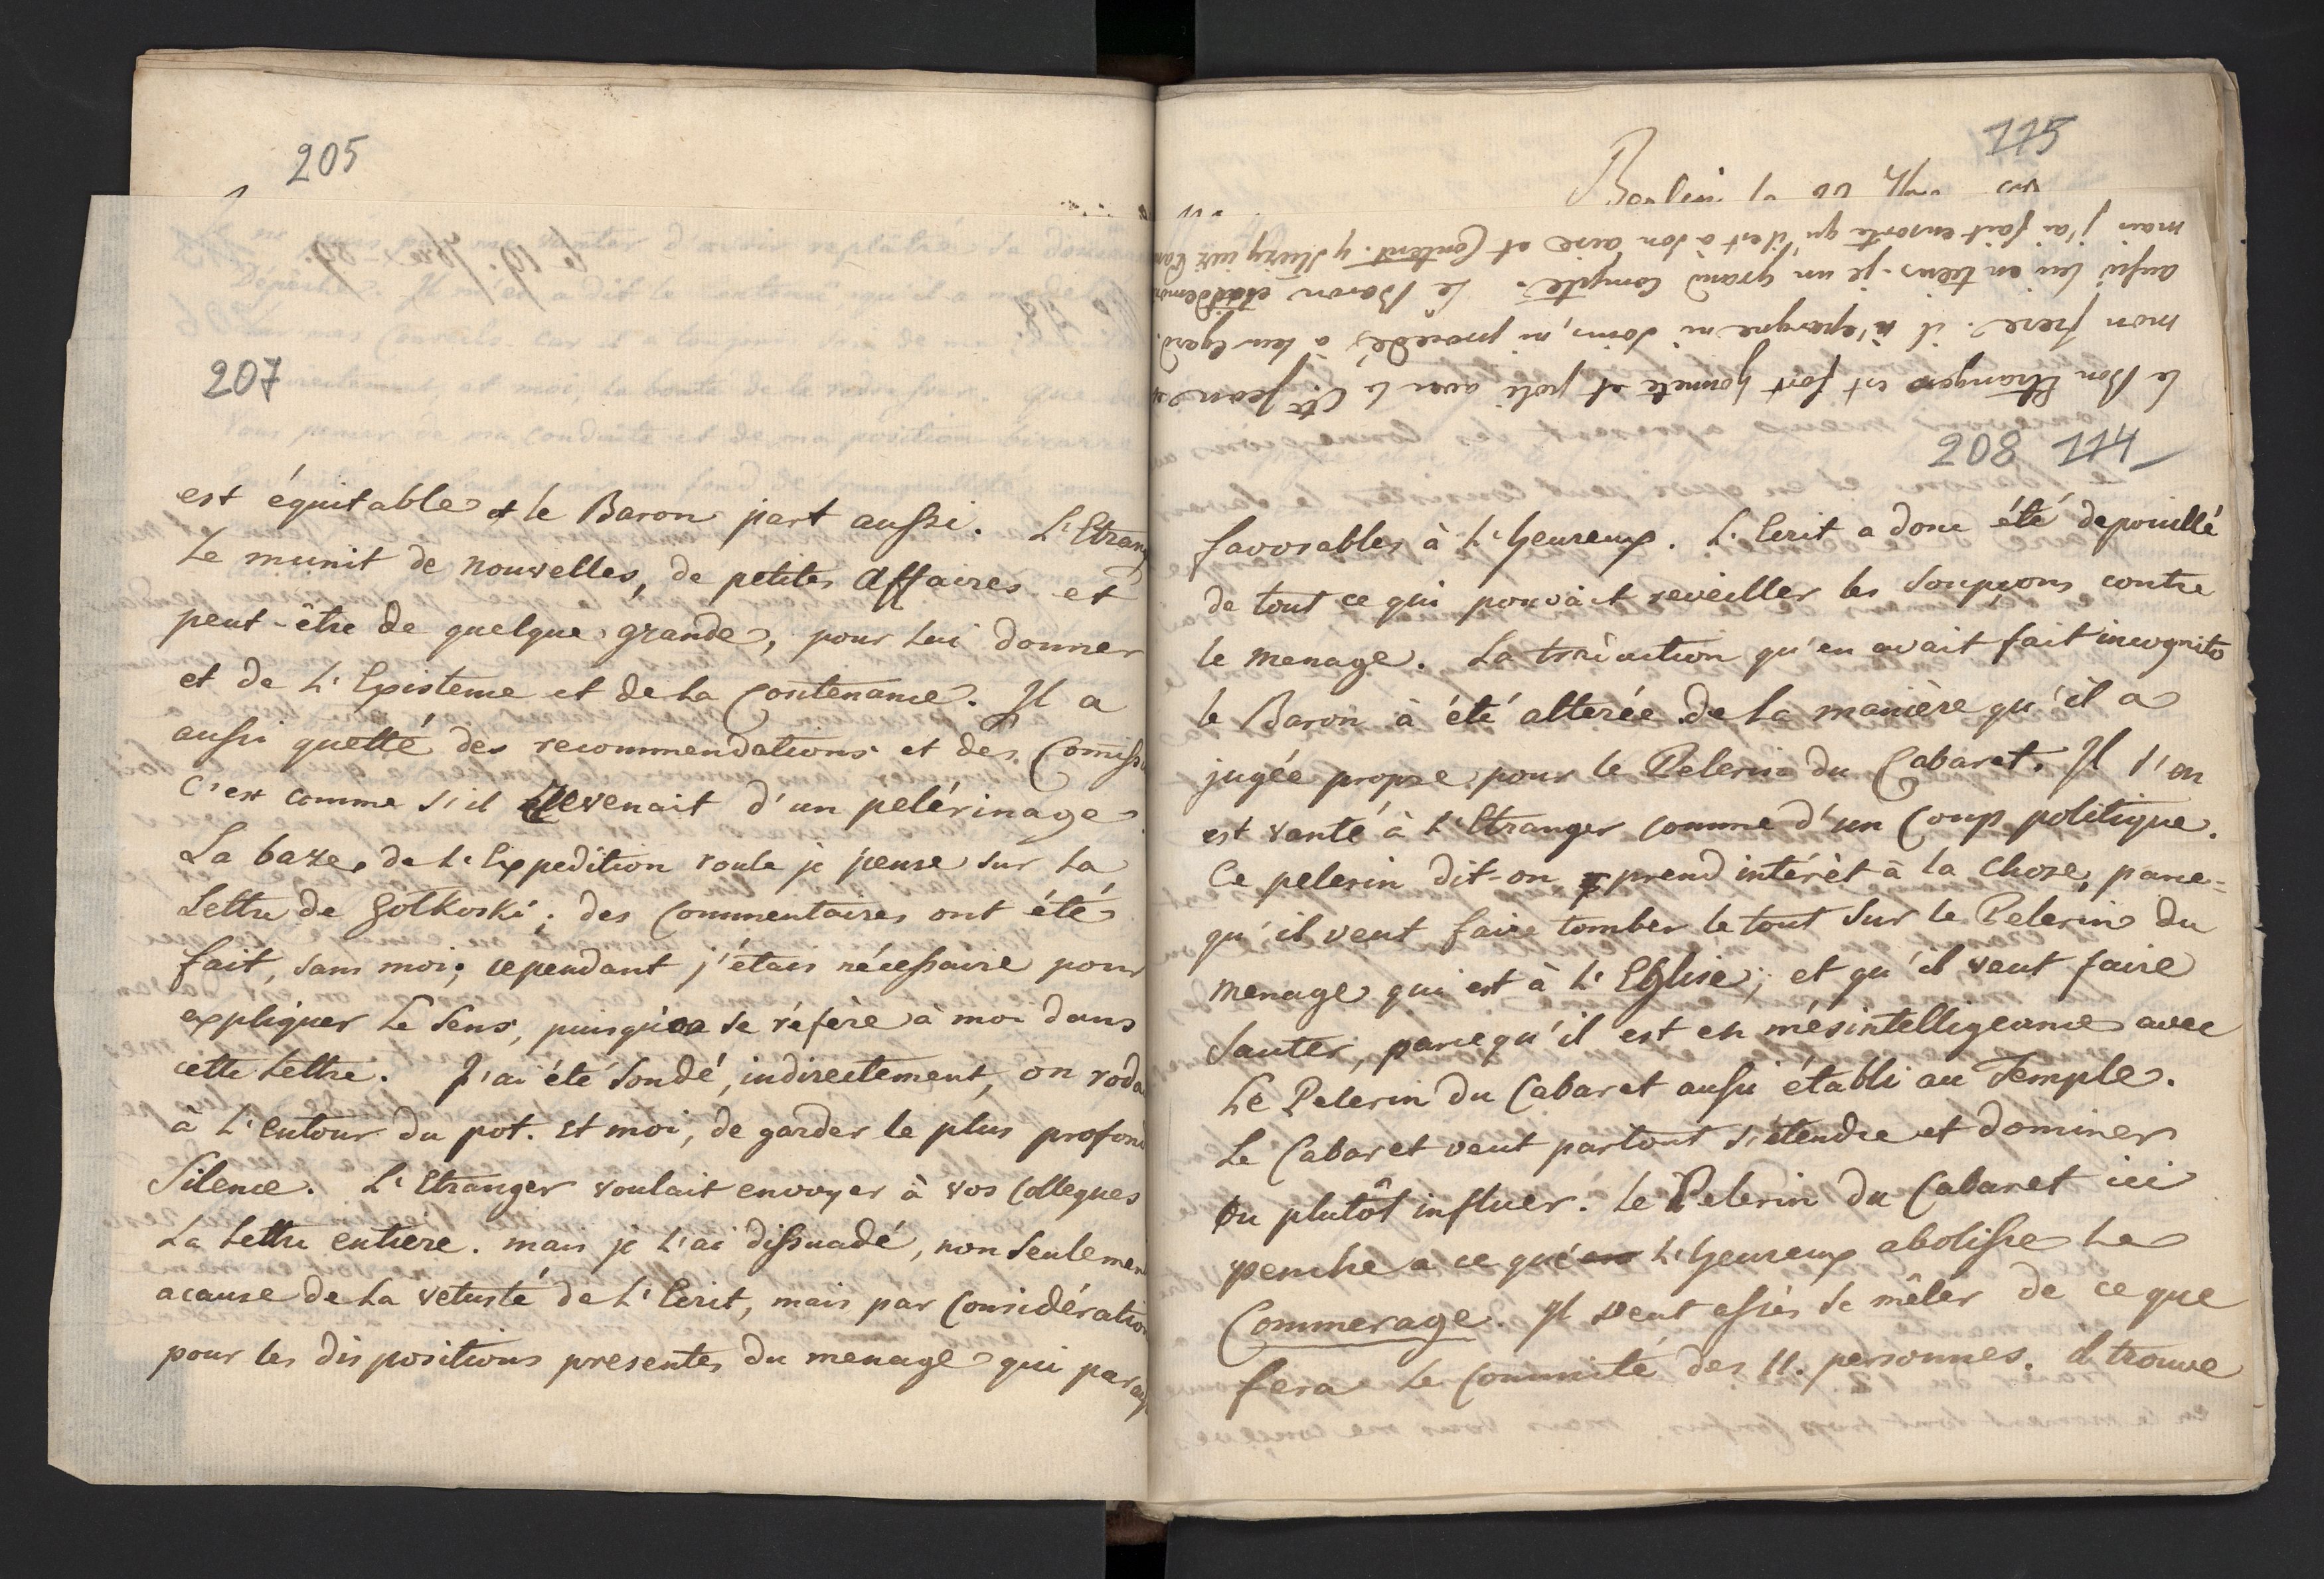 205
207
est équitable et le Baron part aussi. L'Etrang
Le munit de nouvelles, de petites affaires et
peut-être de quelque grande, pour lui donner
et de L'Episteme et de la Contenance. Il a
aussi quetté des recommendations et des Comiss
C'est comme s'il Revenait d'un pelérinage.
La baze de L'Expedition roule je pense sur la
Lettre de Golkoski; des Commentaires ont été
fait, sans moi; cependant j'étais nécessaire pour
expliquer Le Sens, puisqu'on se réfère à moi dans
cette Lettre. J'ai été Sondé, indirectement, on roda
à L'entour du pot. et moi, de garder le plus profond
Silence. L'Etranger voulait envoyer à vos Collegues
La Lettre entiere. mais je L'ai dissuadé, non Seulemen
acause de La vetusté de L'Ecrit, mais par Considératio
pour les dispositions presentes du menage qui paray
115
Berlin
le Bon Etranger est fort honnete et poli avec le Cte Jean
mon frere. il n'epargne ni soins, ni procedés à leur egard.
aussi lui en tiens-je un grand compte. Le Baron était
mais j'ai fait ensorte qu'il est à son aise et Content.
208 114
favorables à L'heureux. L'Ecrit a donc été depouillé
de tout ce qui pouvait reveiller les Soupçons contre
le menage. La traduction qu'en avait fait incognito
le Baron à été alterée de la manière qu'il a
jugée propre pour le Pelerin du Cabaret. Il s'en
est vanté à L'Etranger comme d'un Coup politique.
Ce pelerin dit-on, prend intérèt à la Chose, parce-
qu'il veut faire tomber le tout sur le Pelerin du
menage qui est à L'Eglise; et qu'il veut faire
Sauter, parcequ'il est en mésintelligeance avec
Le Pelerin du Cabaret aussi établi au Temple.
Le Cabaret veut partout s'étendre et dominer
ou plutôt influer. Le Pelerin du Cabaret ici
penche a ce que L'heureux abolisse Le
Commerage. Il veut assès se mêler de ce que
fera Le Committé des 11. personnes. il trouve